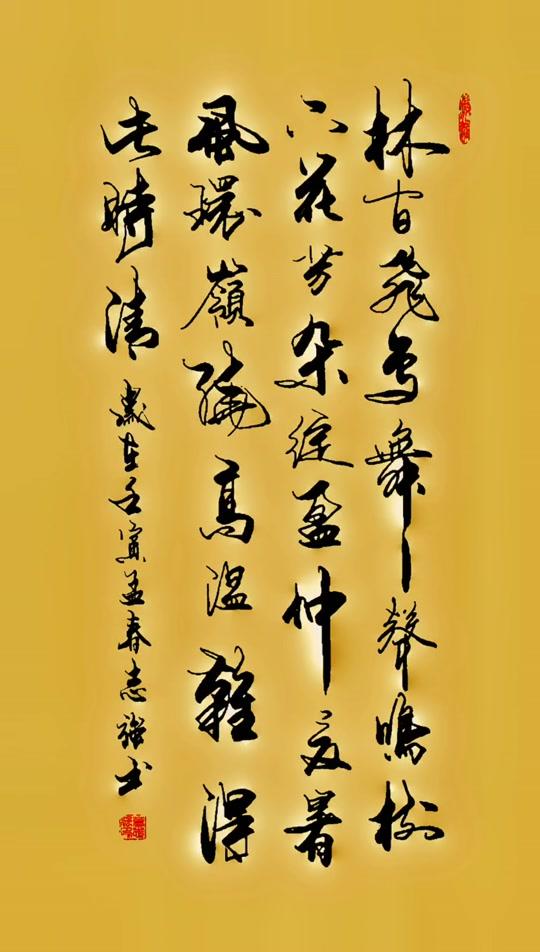 林間飛鳥舞聲鳴樹
下花芳朵綻盈仲夏暑
風環嶺繞高溫難得
此時清 歲在壬寅孟春志強书